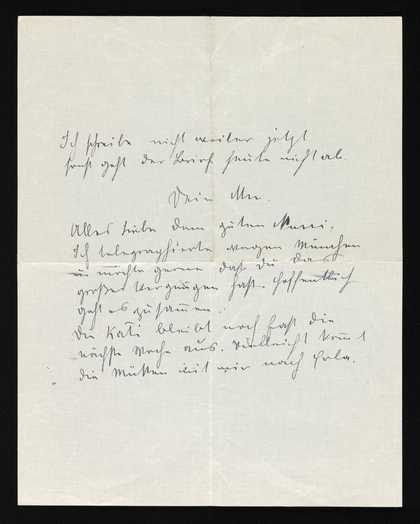 Ich schreibe nicht weiter jetzt
sonst geht der Brief heute nicht ab.
Dein
Alles Liebe dem guten
Ich telegraphierte wegen München
u möchte gerne daß du das
große Vergnügen hast. Hoffentlich
geht es zusammen.
Die Kati bleibt noch fast die
nächste Woche aus. Vielleicht kommt
die mit mir nach